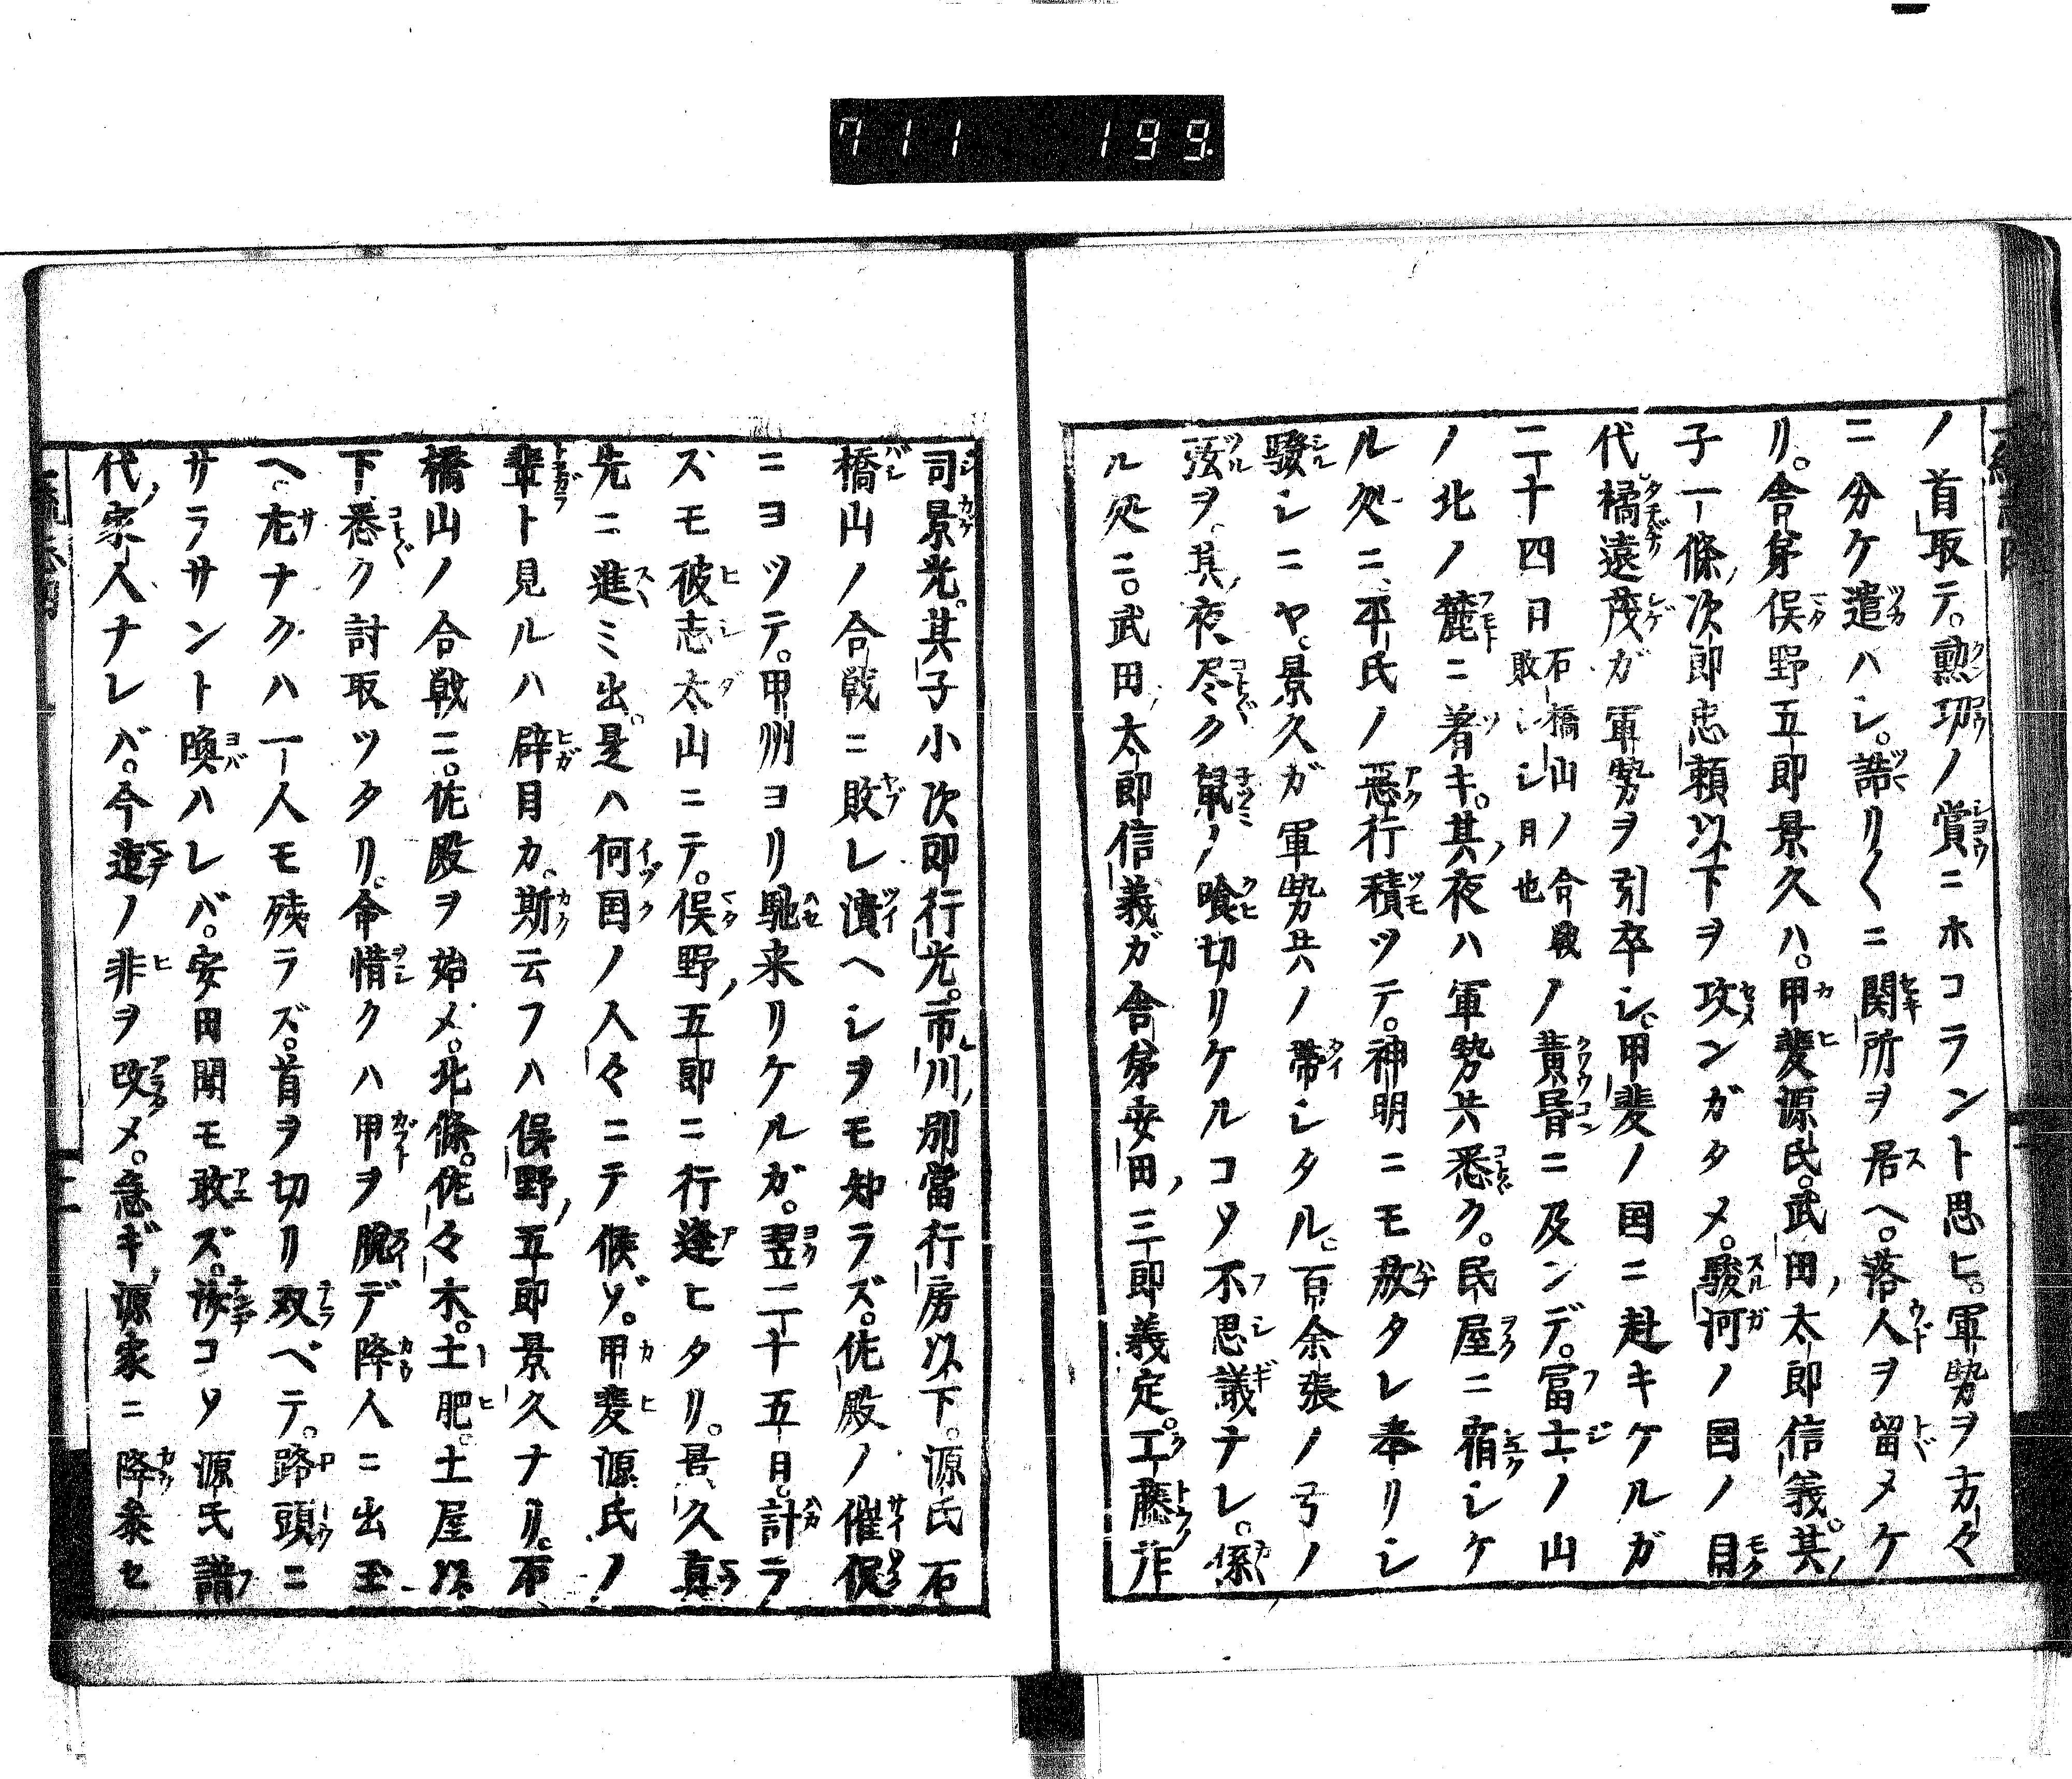 711 199.
ノ首取テ。勲功ノ賞ニホコラント思ヒ。軍勢ヲ方々
ニ分ケ遣ハシ。詰リ〱ニ関所ヲ居ヘ。落人ヲ留メケ
リ。舎弟俣野五郎景久ハ。甲斐源氏。武田ノ太郎信義。其ノ
子一條ノ次郎忠頼以下ヲ攻ンガタメ。駿河ノ国ノ目
代。橘遠茂ガ軍勢ヲ引卒シ。甲斐ノ国ニ赴キケルガ
二十四日石橋山ノ合戦敗シシ月也ノ黄昏ニ及ンデ。富士ノ山
ノ北ノ麓ニ着キ。其ノ夜ハ軍勢共悉ク。民屋ニ宿シケ
ル処ニ、平氏ノ悪行積ツテ。神明ニモ放タレ奉リシ
驗シニヤ。景久ガ軍勢共ノ帯シタル。百余張ノ弓ノ
弦ヲ。其ノ夜尽ク鼠ノ喰切リケルコソ不思議ナレ。係
ル処ニ。武田ノ太郎信義ガ舎弟安田ノ三郎義定。工藤庄
司景光。其子小次郎行光。市川ノ別當行房以下。源氏石
橋山ノ合戦ニ敗レ潰ヘシヲモ知ラズ。佐殿ノ催促
ニヨツテ。甲州ヨリ馳来リケルガ。翌二十五日。計ラ
ズモ彼志太山ニテ。俣野ノ五郎ニ行逢ヒタリ。景久真
先ニ進ミ出。是ハ何国ノ人々ニテ候ゾ。甲斐源氏ノ
輩ト見ルハ僻目カ。斯云フハ俣野ノ五郎景久ナリ。石
橋山ノ合戦ニ。佐殿ヲ始メ。北條。佐々木。土肥。土屋以
下悉ク討取ツタリ。命惜クハ甲ヲ脱デ降人ニ出玉
ヘ。左ナクハ一人モ残ラズ。首ヲ切リ双ベテ。路頭ニ
サラサント喚ハレバ。安田聞モ敢ズ。汝コソ源氏譜
代ノ家人ナレバ。今迄ノ非ヲ改メ。急ギ源家ニ降参セ